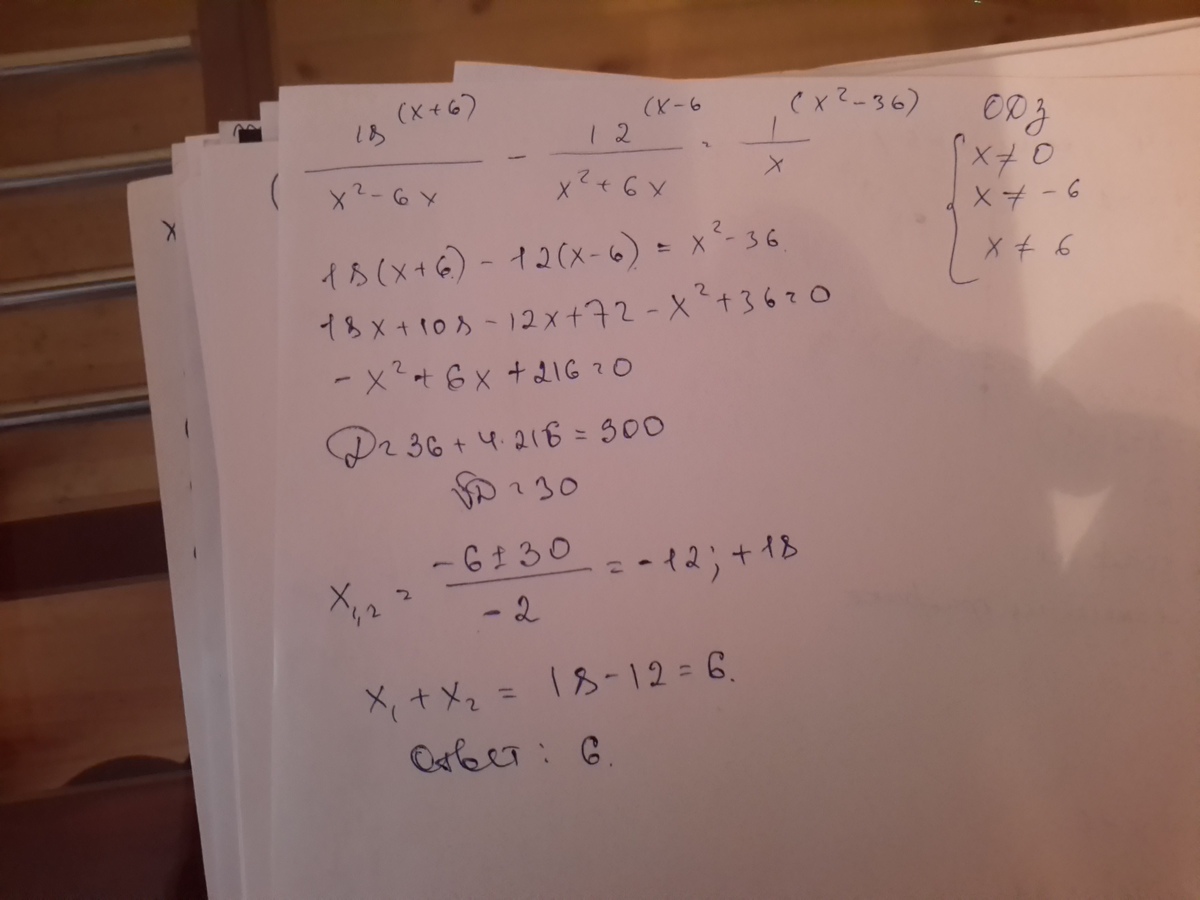 18 (x+6) / x² - 6x - 12 (x-6 / x² + 6x = 1 (x² - 36) / x
ОДЗ
x ≠ 0
x ≠ -6
x ≠ 6
18(x+6) - 12(x-6) = x² - 36.
18x + 108 - 12x + 72 - x² + 36 = 0
- x² + 6x + 216 = 0
D = 36 + 4·216 = 900
√D = 30
x₁,₂ = -6 ± 30 / -2 = -12; +18
x₁ + x₂ = 18 - 12 = 6.
Ответ: 6.